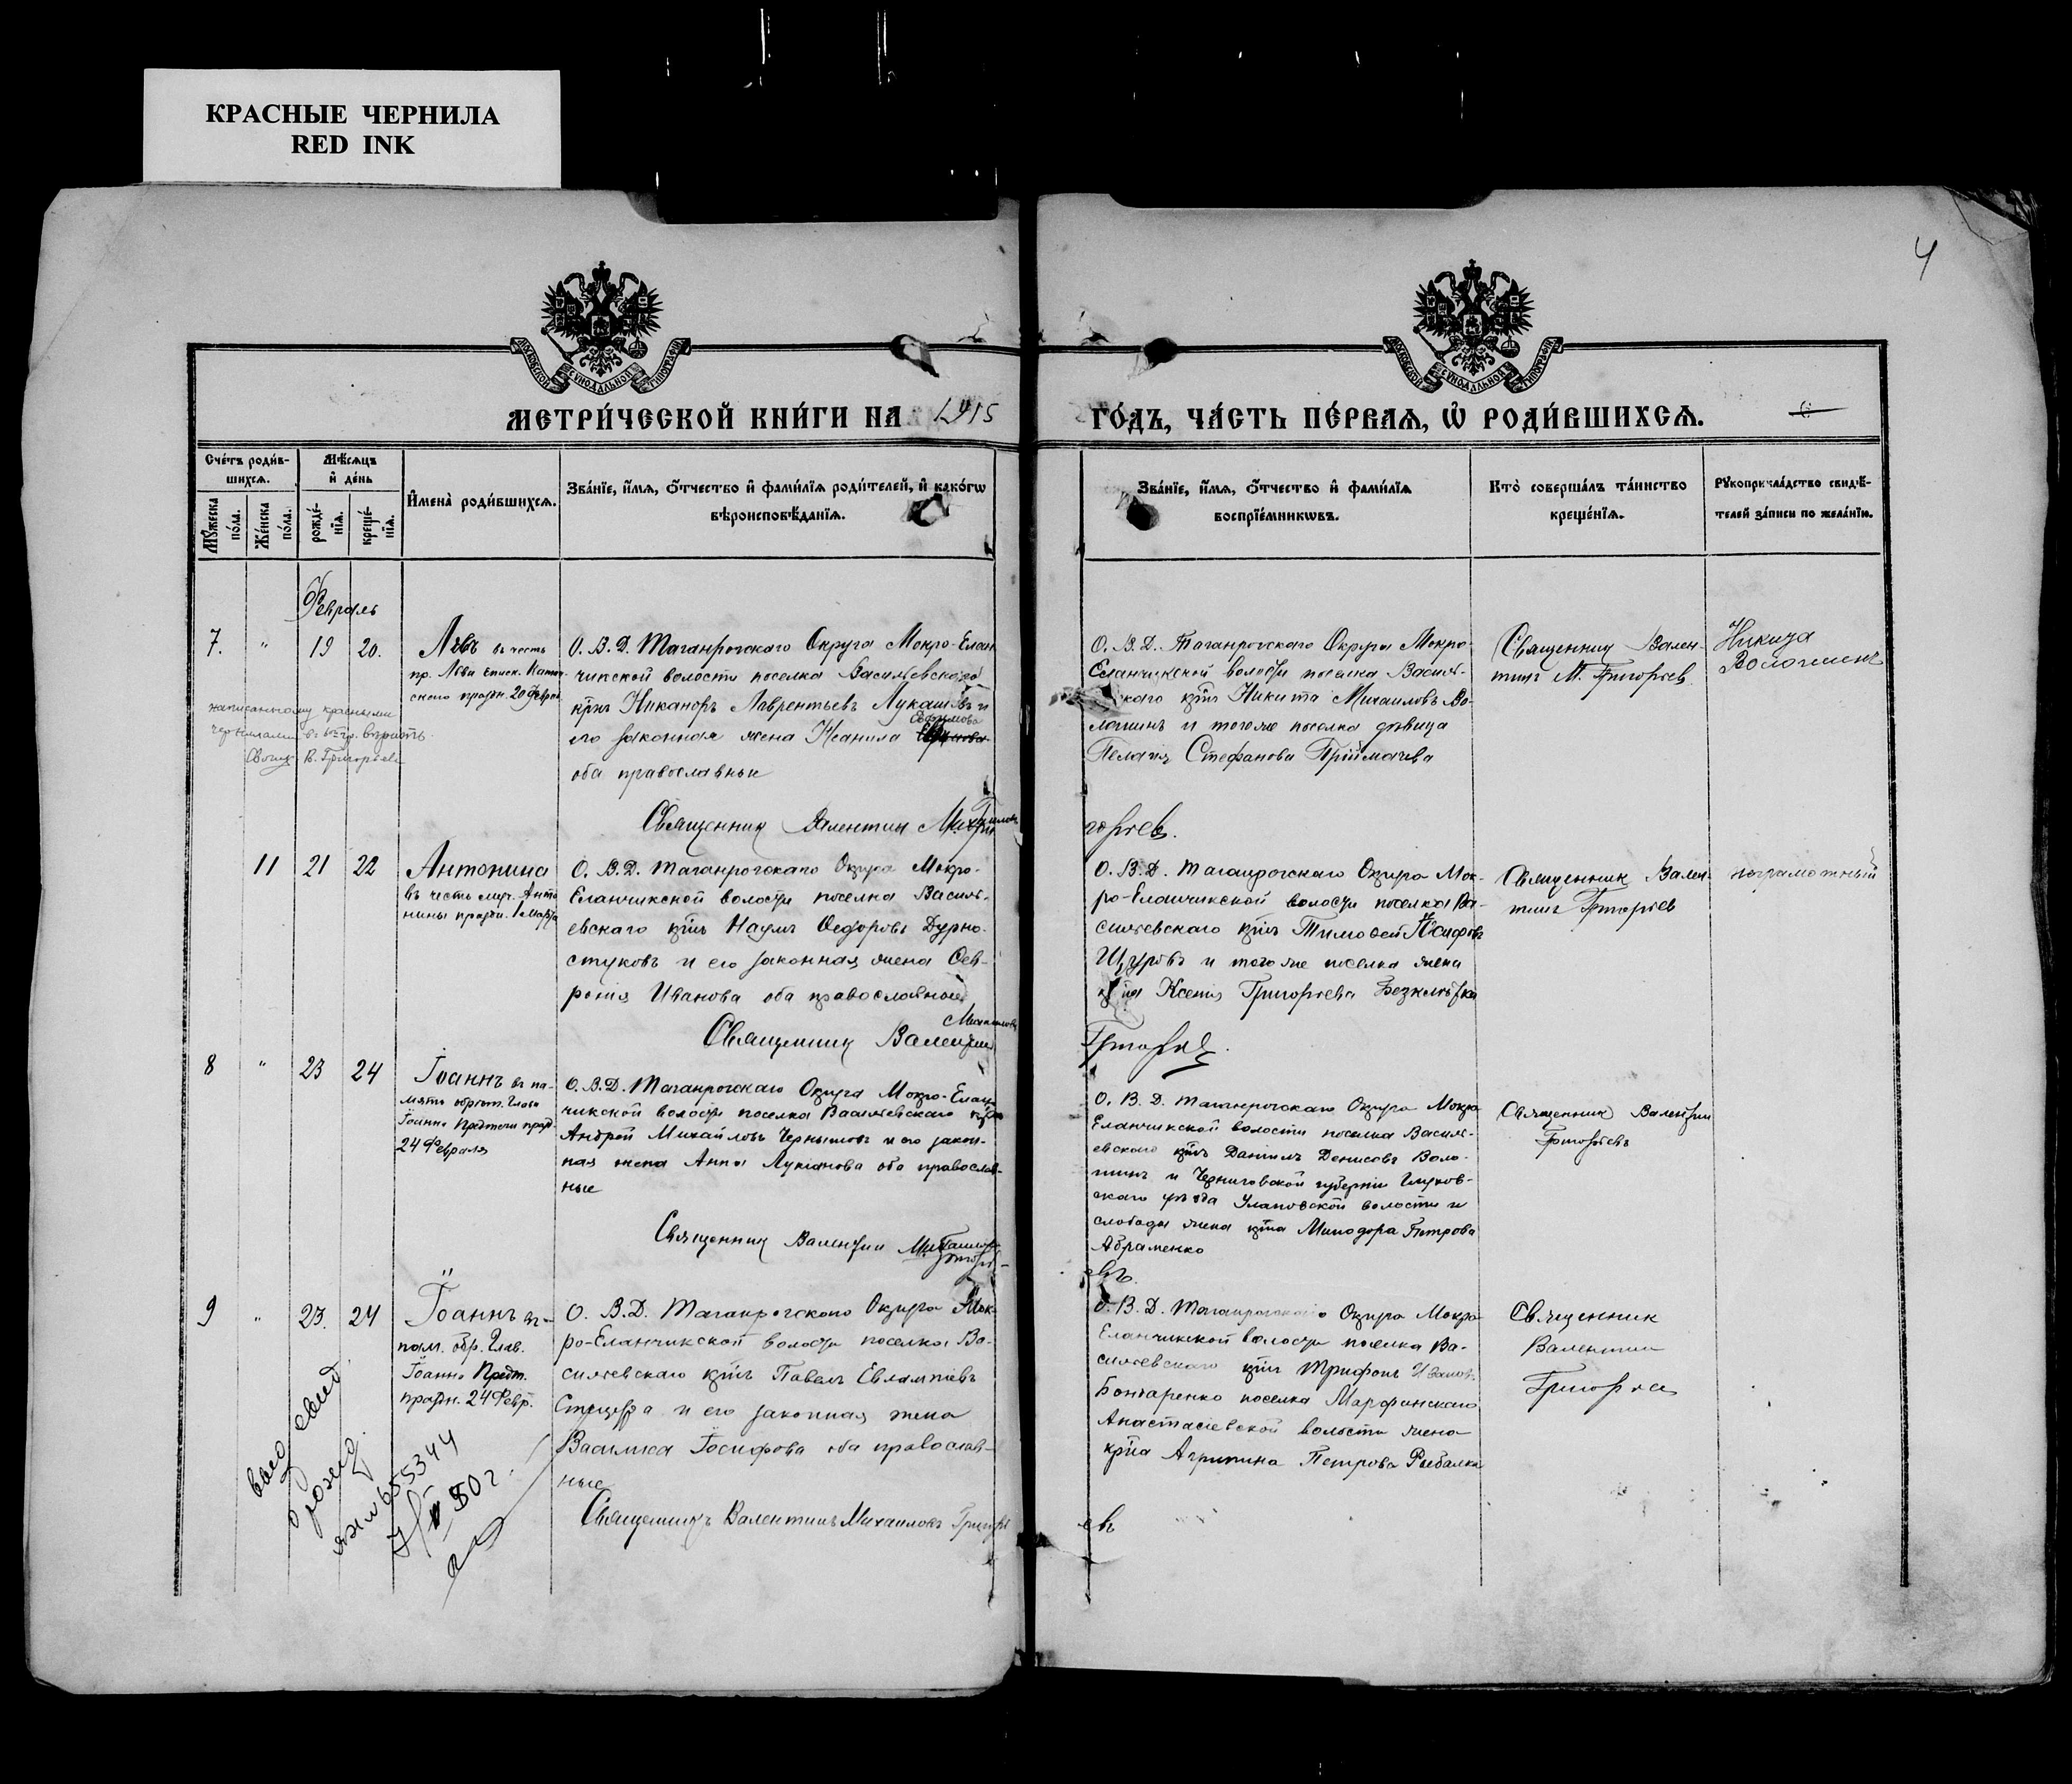 КРАСНЫЕ ЧЕРНИЛА
RED INK
4
МОСКОВСКОЙ СѴНОДАЛЬНОЙ ТИПОГРАФІИ
МОСКОВСКОЙ СѴНОДАЛЬНОЙ ТИПОГРАФІИ
МЕТРИ́ЧЕСКОЙ КНИ́ГИ НА 1915
ГО́ДЪ, ЧА́СТЬ ПЕ́РВАѦ, Ѡ҆ РОДИ́ВШИХСѦ.
Сче́тъ роди́в-
шихсѧ.
Мѣ́сѧцъ
и҆ де́нь
Мꙋ́жеска
по́ла.
Же́нска
по́ла.
рожде́-
нїѧ.
креще́-
нїѧ.
И҆мена̀ роди́вшихсѧ.
Зва́нїе, и҆́мѧ, ѻ҆́тчество и҆ фами́лїѧ роди́телей, и҆ како́гѡ
вѣроисповѣ́данїѧ.
Зва́нїе, и҆́мѧ, ѻ҆́тчество и҆ фами́лїѧ
воспрїе́мникѡвъ.
Кто̀ соверша́лъ та́инство
креще́нїѧ.
Рꙋкоприкла́дство свидѣ́-
телей за́писи по жела́нїю.
Февраль
7. " 19 20.
Левъ въ честь
пр. Льва Еписк. Катан-
скаго праздн. 20 Февр.
написанному красными
чернилами въ 6 гр. вѣрить
Свящ. В. Григорьевъ
О. В. Д. Таганрогскаго Округа Мокро-Елан
чикской волости поселка Васильевскаго
кр̃нъ Никаноръ Лаврентьевъ Лукашовъ и
Ефимова
его законная жена Неанила
оба православные
Священникъ Валентинъ Михаиловъ Гри
О. В. Д. Таганрогскаго Округа Мокро-
Еланчикской волости поселка Василь-
евскаго кр̃нъ Никита Михаиловъ Во-
лошинъ и того же поселка дѣвица
Пелагія Стефанова Пріймачева
горьевъ.
Священникъ Вален-
тинъ М. Григорьев
Никита
Волошинъ
11 21 22
Антонина
въ честь муч. Анто
нины праздн. 1 Марта
О. В. Д. Таганрогскаго Округа Мокро-
Еланчикской волости поселка Василь-
евскаго кр̃нъ Наумъ Ѳедоровъ Дурно-
стуковъ и его законная жена Фев-
ронія Иванова оба православные
Михаиловъ
Священникъ Валентинъ
О. В. Д. Таганрогскаго Округа Мок-
ро-Еланчикской волости поселка Ва-
сильевскаго кр̃нъ Тимоѳей Іосифовъ
Щуровъ и того же поселка жена
кр̃на Ксенія Григорьева
Григорьев.
Священник Вален-
тинъ Григорьев
неграмотный
8 " 23 24
Іоаннъ въ па-
мять обрѣт. Главы
Іоанна Предтечи празд.
24 Февраля
О. В. Д. Таганрогскаго Округа Мокро-Елан-
чикской волости поселка Васильевскаго кр̃нъ
Андрей Михайловъ Чернышовъ и его закон-
ная жена Анна Лукіанова оба православ-
ные
Священникъ Валентин Михаиловъ
Григорь-
О. В. Д. Таганрогскаго Округа Мокро
Еланчикской волости поселка Василь-
евскаго кр̃нъ Даніилъ Денисовъ Воло-
шинъ и Черниговской губерніи Глухов-
скаго уѣзда Улановской волости и
слободы жена кр̃на Минодора Петрова
Абраменко
евъ.
Священник Валентин
Григорьевъ
9 " 23. 24
Іоаннъ въ
пам. обр. Глав.
Іоанна Предт.
праздн. 24 Февр.
О. В. Д. Таганрогскаго Округа Мок-
ро-Еланчикской волости поселка Ва-
сильевскаго кр̃нъ Павелъ Евлампіевъ
и его законная жена
Василиса Іосифова оба православ-
ные
Священникъ Валентинъ Михаиловъ Григорь
О. В. Д. Таганрогскаго Округа Мокро
Еланчикской волости поселка Ва-
сильевскаго кр̃нъ Трифонъ Ивановъ
Бондаренко поселка Марфинскаго
Анастасіевской волости жена
кр̃на Агрипина Петрова Рыбалка
евъ
Священник
Валентин
Григорьев
выд свид
о рожд.
655344
50 г.